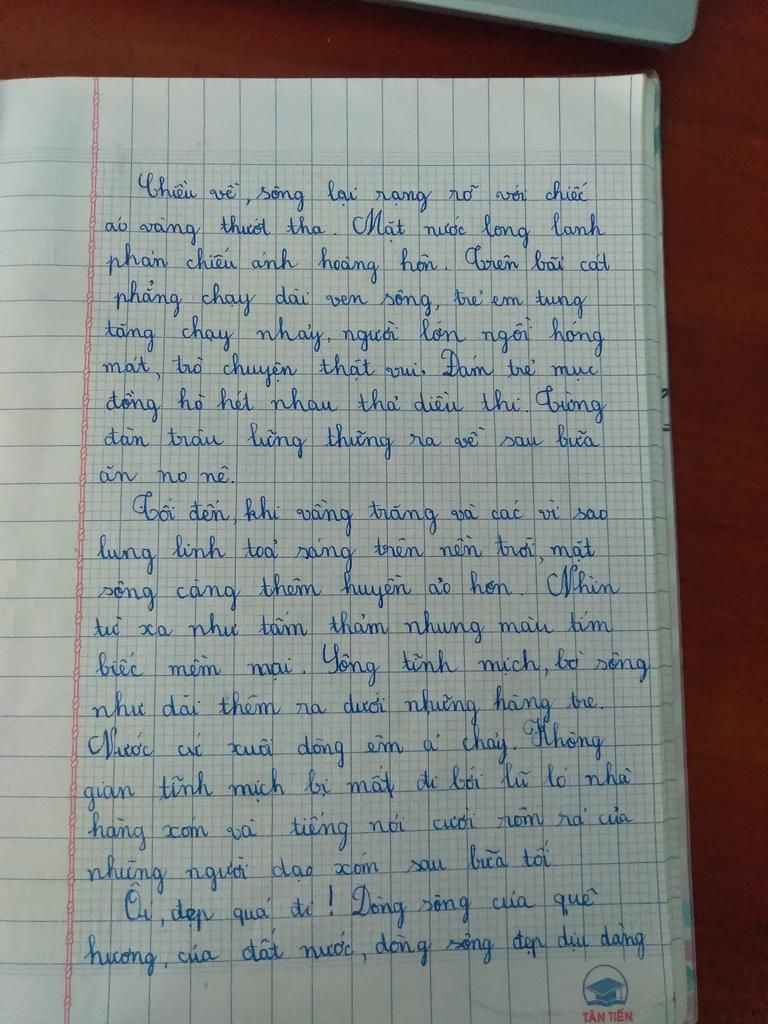 Chiều về, sông lại rạng rỡ với chiếc
áo vàng thướt tha. Mặt nước long lanh
phản chiếu ánh hoàng hôn. Trên bãi cát
phẳng chạy dài ven sông, trẻ em tung
tăng chạy nhảy, người lớn ngồi hóng
mát, trò chuyện thật vui. Đám trẻ mục
đồng hò hét nhau thả diều thi. Từng
đàn trâu lững thững ra về sau bữa
ăn no nê.
Tối đến, khi vầng trăng và các vì sao
lung linh toả sáng trên nền trời, mặt
sông càng thêm huyền ảo hơn. Nhìn
từ xa như tấm thảm nhung màu tím
biếc mềm mại. Sông tĩnh mịch, bờ sông
như dài thêm ra dưới những hàng tre.
Nước cứ xuôi dòng êm ả chảy. Không
gian tĩnh mịch bị mất đi bởi lũ ló nhà
hàng xóm và tiếng nói cười rôm rả của
những người dạo xóm sau bữa tối
Ôi, đẹp quá đi! Dòng sông của quê
hương, của đất nước, dòng sông đẹp dịu dàng
TÂN TIẾN